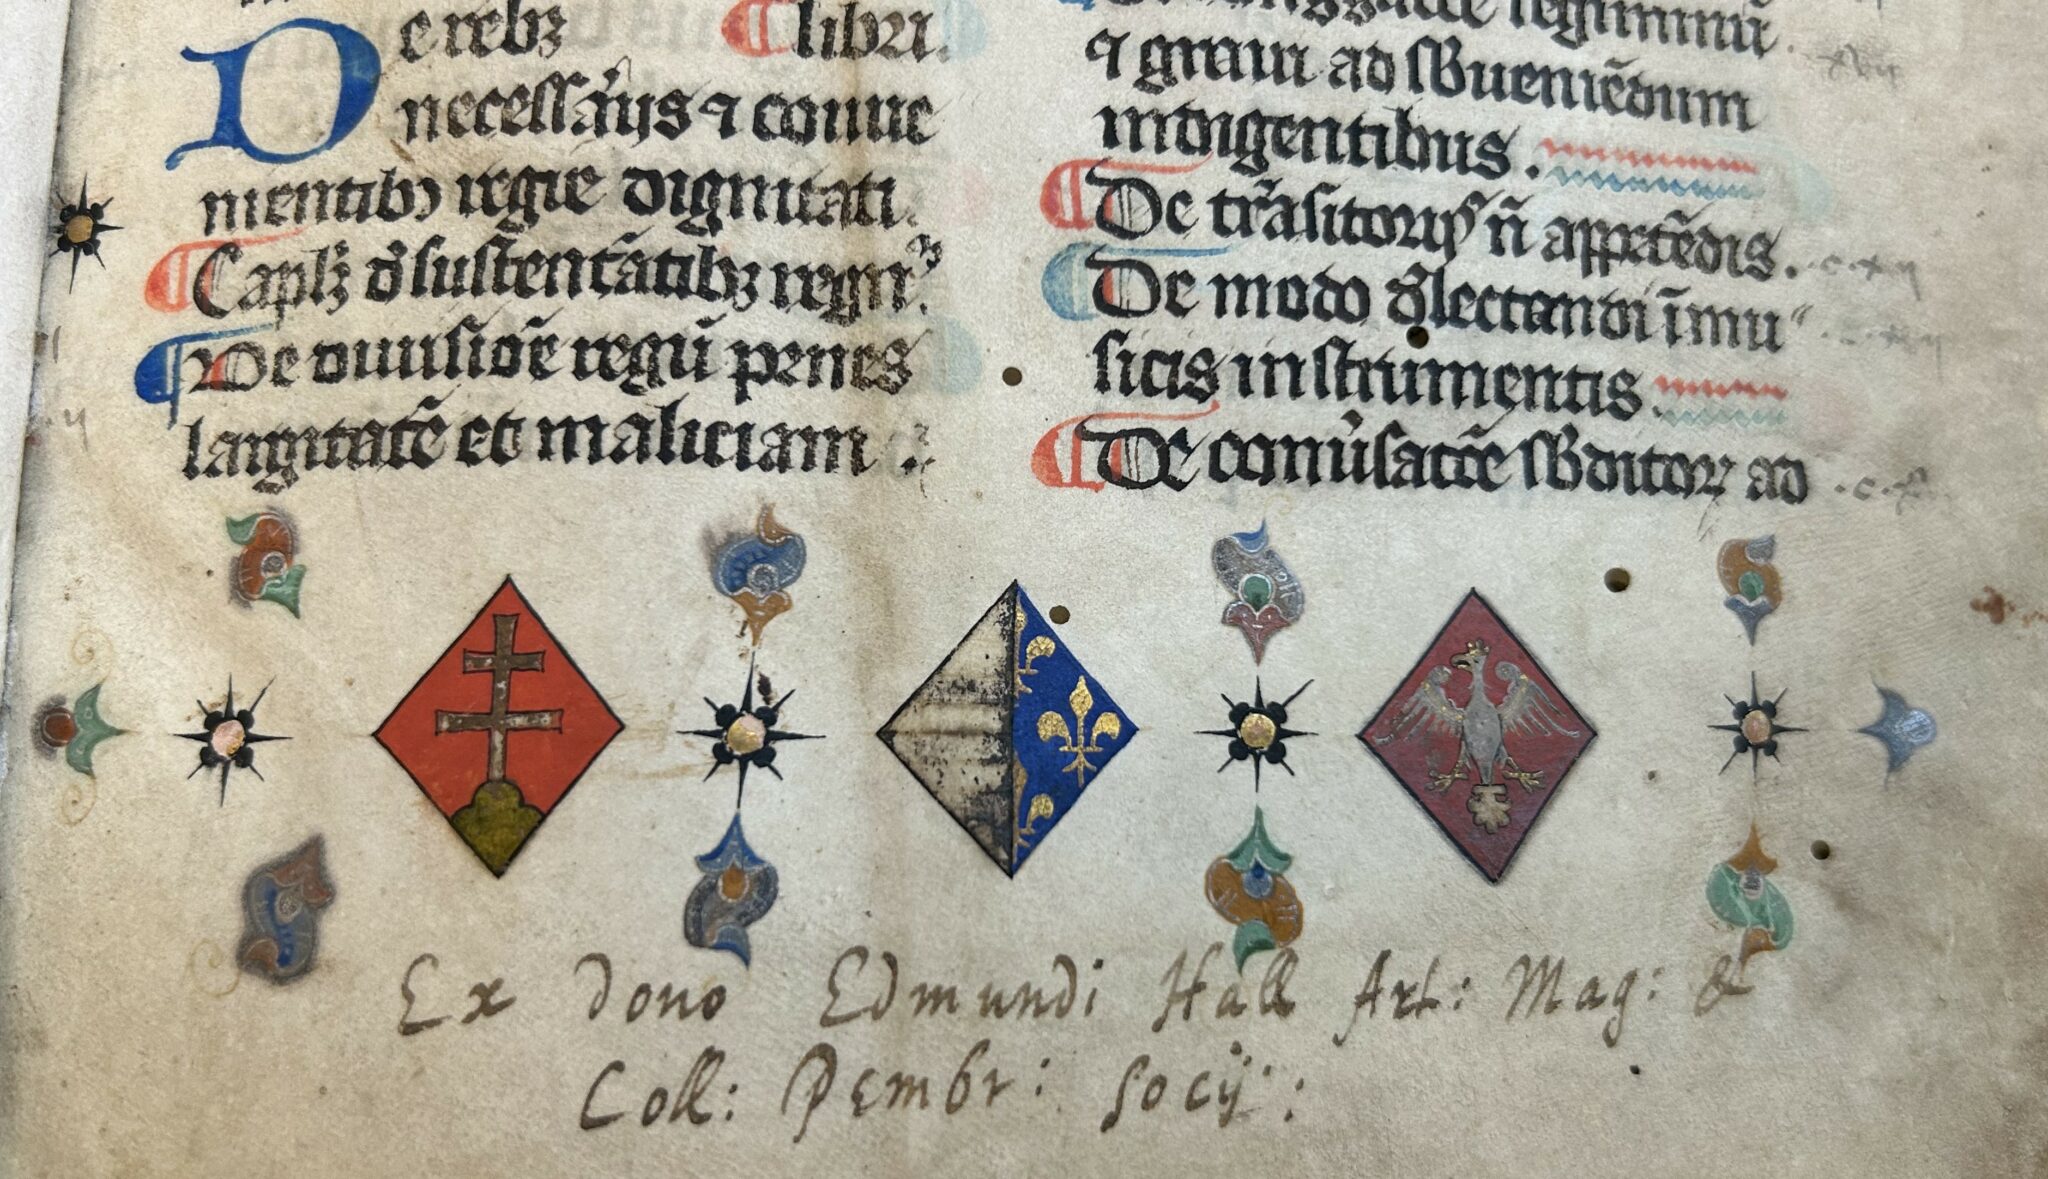 De rebꝫ libri.
necessarijs ⁊ conue
mentibꝫ regie dignitati.
Caplꝫ sustentatibꝫ
De diuisiōe regū penes
largitatē et maliciam
⁊ graui ad subueniēdum
indigentibus.
De trāsitorijs nō appetēdis.
De modo delectandi ī mu
sicis instrumentis.
De conūsatiōe sbditoꝝ ad
Ex dono Edmundi Hall Art: Mag: &
Coll: Pembr: Socij: